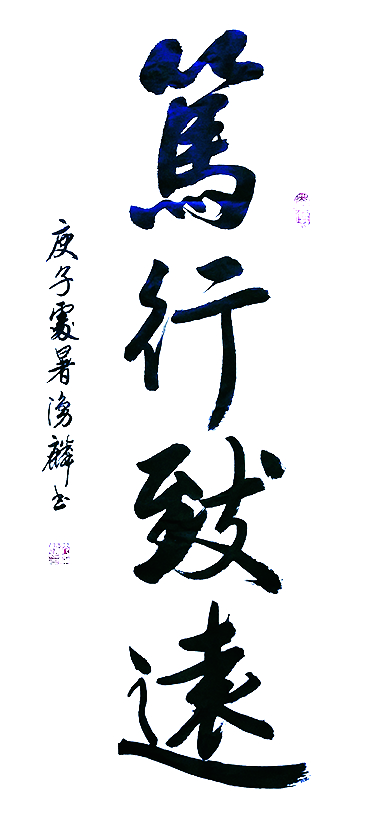 篤行致遠
庚子處暑湧麟书